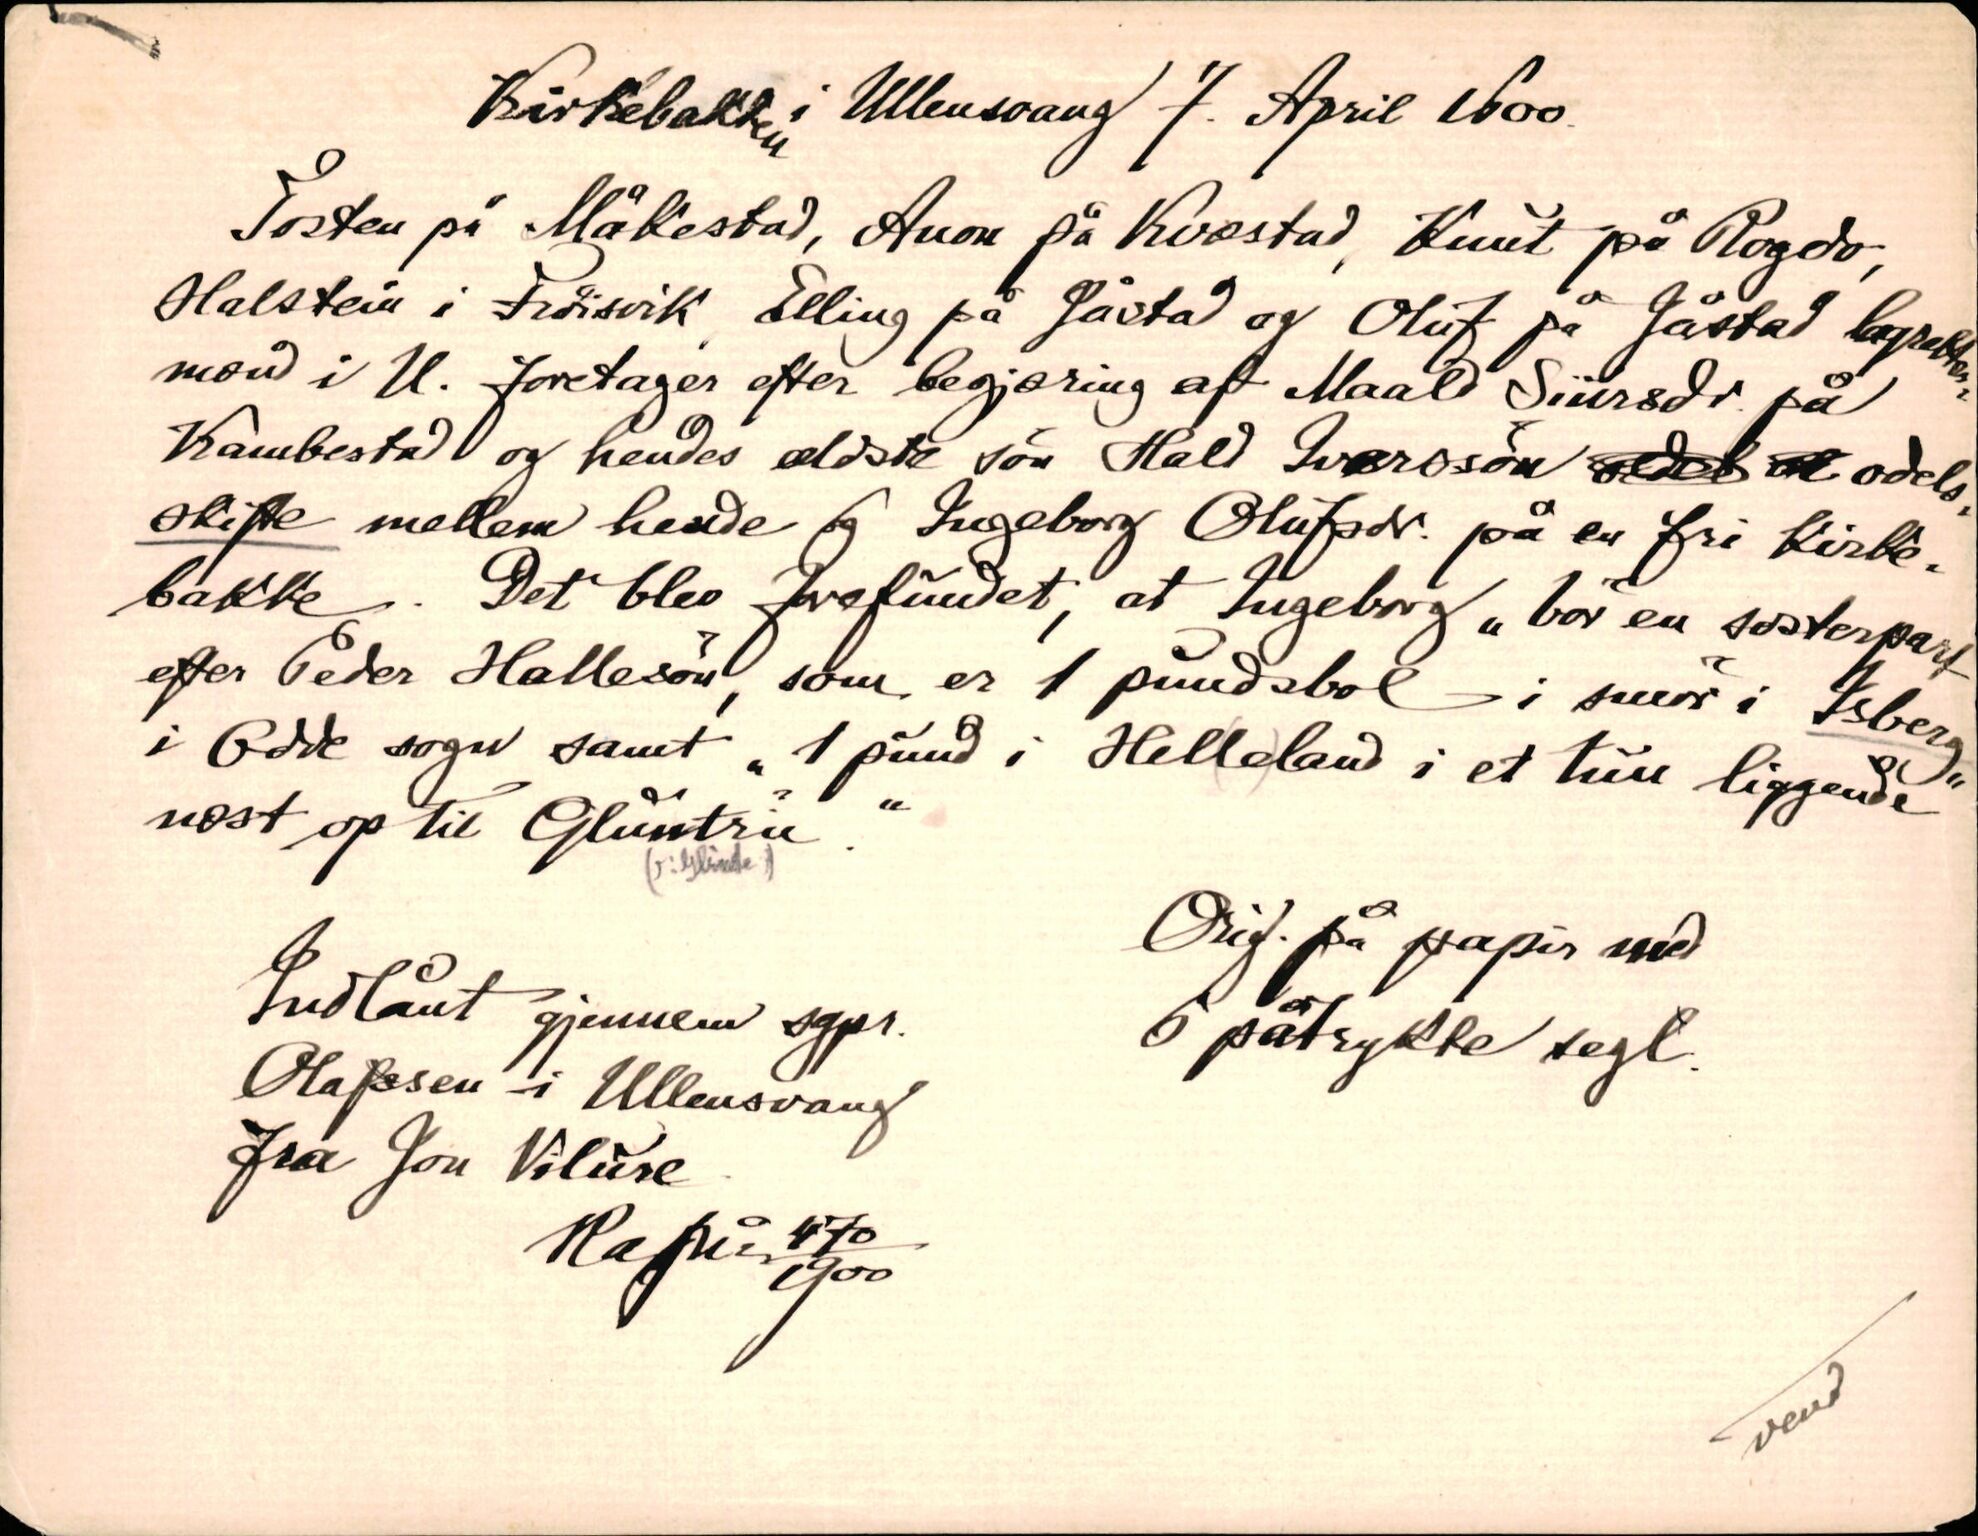 Kirkebakken i Ullensvang 7. April 1600.
Tosten på Måkestad, Anon på Kvæstad, Knut på Rogdo,
Halstein i Fröisvik, Elling på Jåstad og Oluf på Jåstad lagretter-
mænd i U. foretager efter begjæring af Maald Siursdr. på
Kambestad og hendes ældste sön Hald Iversön odels-
skifte mellem hende og Ingeborg Olufsdr. på en fri kirke-
bakke. Det blev forefundet, at Ingeborg „bör en sösterpart
efter Peder Hallesön, som er 1 pundsbol i smör i Isberg"
i Odde sogn samt „1 pund i Helleland i et tun liggende
næst op til Gluntrii."
(ɔ: Glinte)
Orig. på papir med
6 påtrykte segl.
Indlånt gjennem sgpr.
Olafsen i Ullensvang
fra Jon Vilure.
470
1900
vend